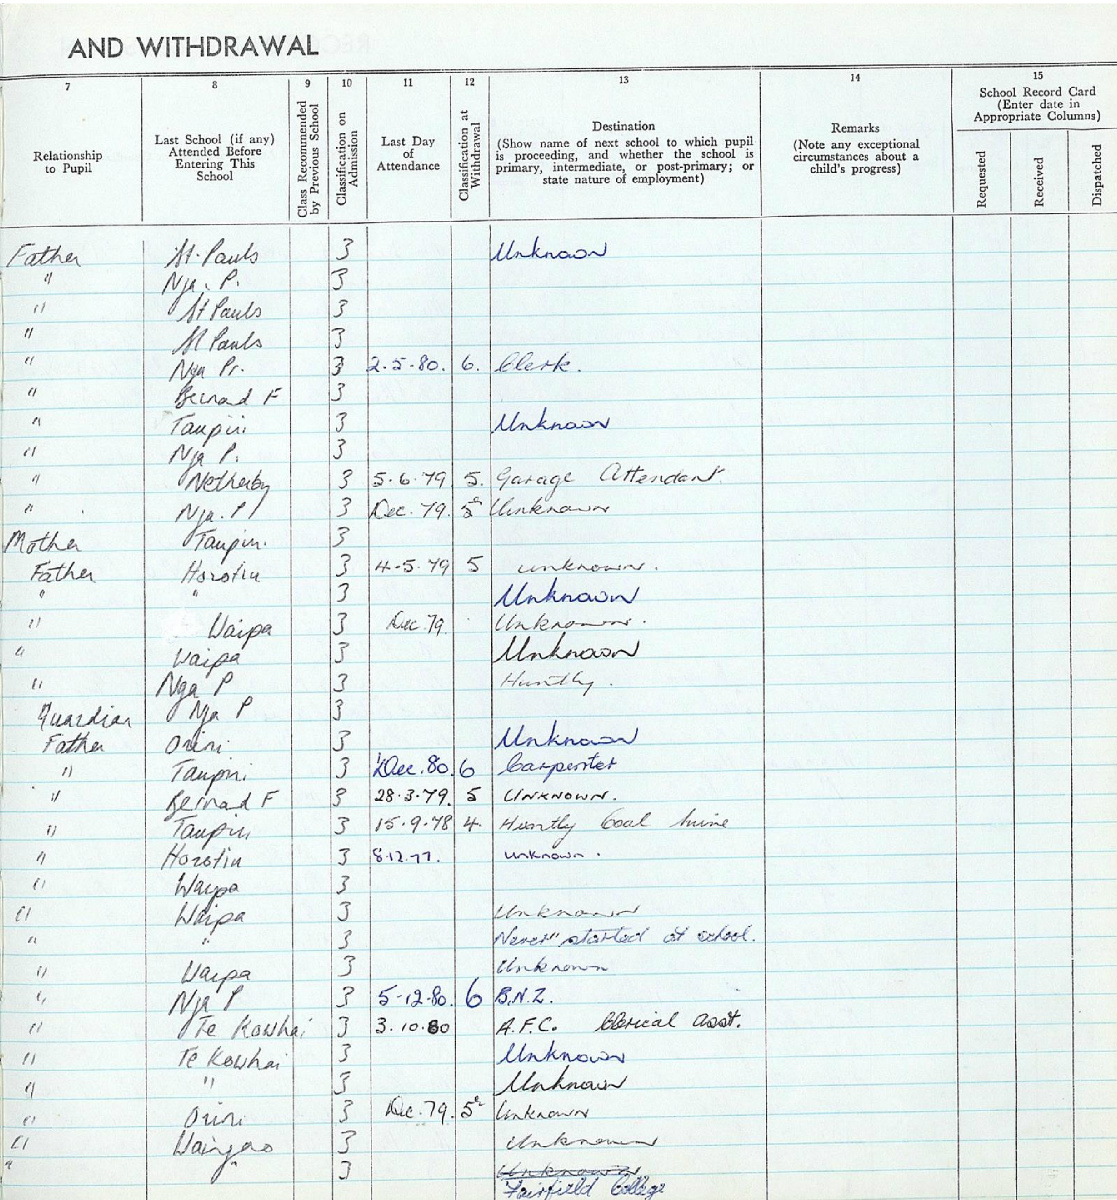 AND WITHDRAWAL
7 8 9 10 11 12 13 14 15
Relationship to Pupil
Last School (if any) Attended Before Entering This School
Class Recommended by Previous School
Classification on Admission
Last Day of Attendance
Classification at Withdrawal
Destination
(Show name of next school to which pupil is proceeding, and whether the school is primary, intermediate, or post-primary; or state nature of employment)
Remarks
(Note any exceptional circumstances about a child's progress)
School Record Card
(Enter date in Appropriate Columns)
Requested
Received
Dispatched
Father St. Pauls 3 Unknown
" Nga. P. 3
" St Pauls 3
" St Pauls 3
" Nga Pr. 3 2.5.80. 6. Clerk.
" Bernad F 3
" Taupiri 3 Unknown
" Nga P. 3
" Netherby 3 5.6.79 5. Garage Attendant.
" Nga. P 3 Dec. 79. 5 Unknown
Mother Taupiri. 3
Father Horotiu 3 4-5.79 5 unknown.
" " 3 Unknown
" Waipa 3 Dec. 79. Unknown.
" Waipa 3 Unknown
" Nga P 3 Huntly.
Guardian Nga P 3
Father Orini 3 Unknown
" Taupiri 3 Dec. 80. 6 Carpenter
" Bernad F 3 28.3.79. 5 UNKNOWN.
" Taupiri 3 15.9.78 4. Huntly Coal mine
" Horotiu 3 8.12.77. unknown.
" Waipa 3
" Waipa 3 Unknown
" " 3 Never started at school.
" Waipa 3 Unknown
" Nga P 3 5-12-80. 6 B.N.Z.
" Te Kowhai 3 3.10.80 A.F.C. Clerical asst.
" Te Kowhai 3 Unknown
" " 3 Unknown
" Orini 3 Dec. 79. 5 Unknown
" Waingaro 3 Unknown
" " 3 Unknown
Fairfield College